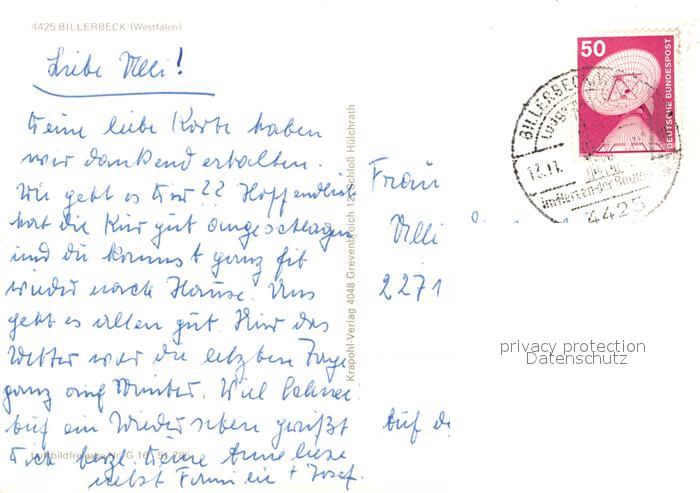 4425 BILLERBECK (Westfalen)
Liebe Ulli!
Deine liebe Karte haben
wir dankend erhalten.
Wie geht es Dir?? Hoffendlich
hat die Kur gut angeschlagen
und du kommst ganz fit
wieder nach Hause. Uns
geht es allen gut. Hier das
Wetter war die letzten Tage
ganz auf Winter. Viel
Auf ein Wiedersehen grüßt
Dich herzl. Deine Anneliese
nebst Familie + Josef.
Krapohl-Verlag 4048 Grevenbroich 12 Schloß Hülchrath
Luftbildfreigabe Nr. G
50
DEUTSCHE BUNDESPOST
BILLERBECK
4425
Frau
Ulli
2271
Auf de
privacy protection
Datenschutz